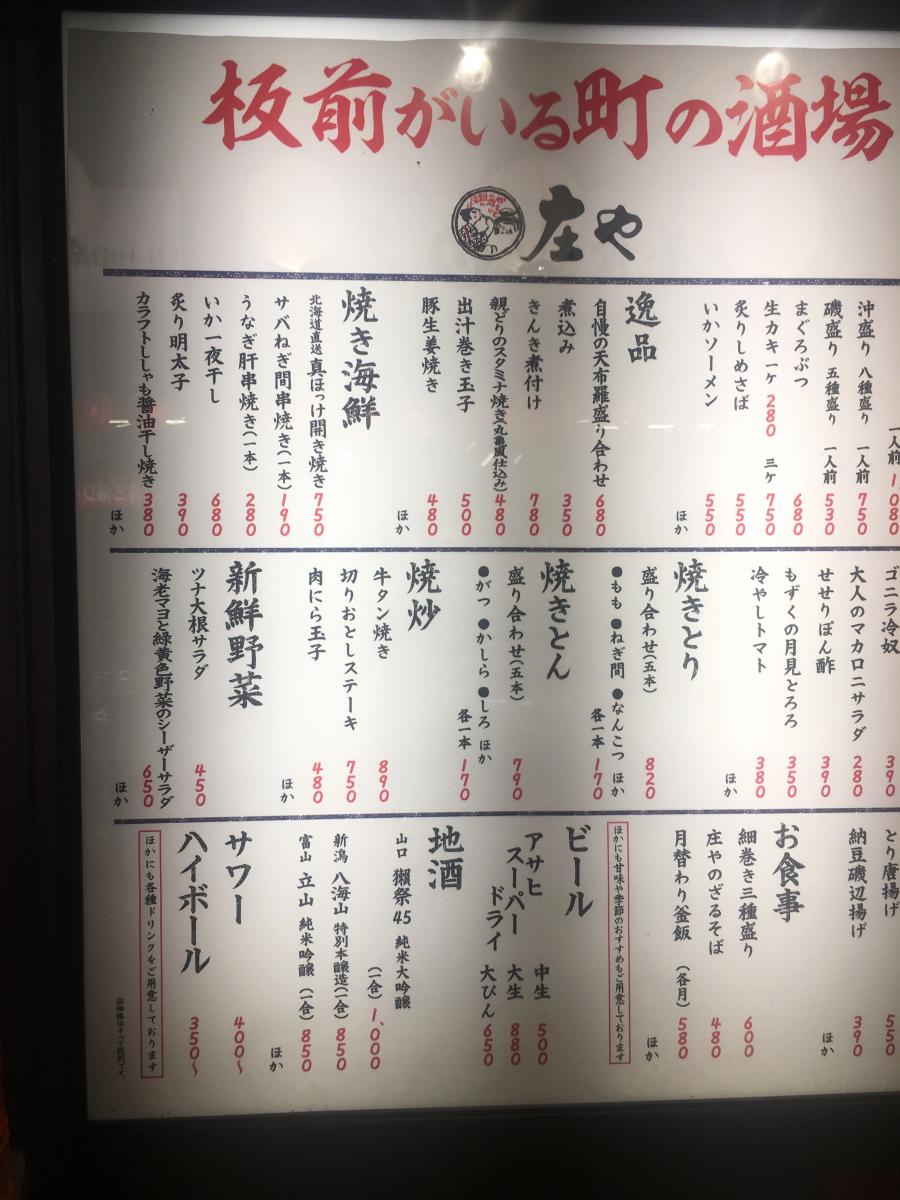 板前がいる町の酒場
庄や
一人前 1,080
沖盛り 八種盛り 一人前 750
磯盛り 五種盛り 一人前 530
まぐろぶつ 680
生カキ 一ケ 280 三ケ 750
炙りしめさば 550
いかソーメン 550
ほか
逸品
自慢の天布羅盛り合わせ 680
煮込み 350
きんき煮付け 780
親どりのスタミナ焼き(丸亀風仕込み) 480
出汁巻き玉子 500
豚生姜焼き 480
ほか
焼き海鮮
北海道直送 真ほっけ開き焼き 750
サバねぎ間串焼き(一本) 190
うなぎ肝串焼き(一本) 280
いか一夜干し 680
炙り明太子 390
カラフトししゃも醤油干し焼き 380
ほか
ゴニラ冷奴 390
大人のマカロニサラダ 280
せせりぽん酢 390
もずくの月見とろろ 350
冷やしトマト 380
ほか
焼きとり
盛り合わせ(五本) 820
●もも ●ねぎ間 ●なんこつ ほか
各一本 170
焼きとん
盛り合わせ(五本) 790
●がつ ●かしら ●しろ ほか
各一本 170
焼炒
牛タン焼き 890
切りおとしステーキ 750
肉にら玉子 480
ほか
新鮮野菜
ツナ大根サラダ 450
海老マヨと緑黄色野菜のシーザーサラダ 650
ほか
とり唐揚げ 550
納豆磯辺揚げ 390
ほか
お食事
細巻き三種盛り 600
庄やのざるそば 480
月替わり釜飯 (各月) 580
ほか
ほかにも甘味や季節のおすすめもご用意しております
ビール
アサヒ
スーパー
ドライ
中生 500
大生 880
大びん 650
地酒
山口 獺祭45 純米大吟醸
(一合) 1,000
新潟 八海山 特別本醸造(一合) 850
富山 立山 純米吟醸(一合) 850
ほか
サワー 400〜
ハイボール 350〜
ほかにも各種ドリンクをご用意しております
※価格はすべて税別です。